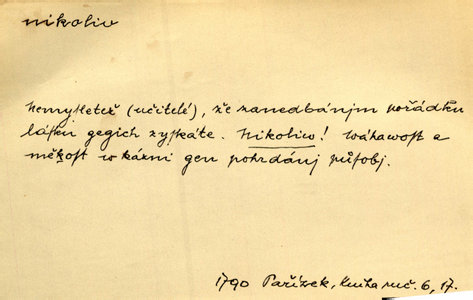 nikoliv
Nemysleteź (učitelé), že zanedbánjm pořádku
lásku gegich zyskáte. Nikoliw! wáhawost a
měkost w kázni gen pohrdánj působj.
1790 Pařízek, Kniha uč. 6, 17.